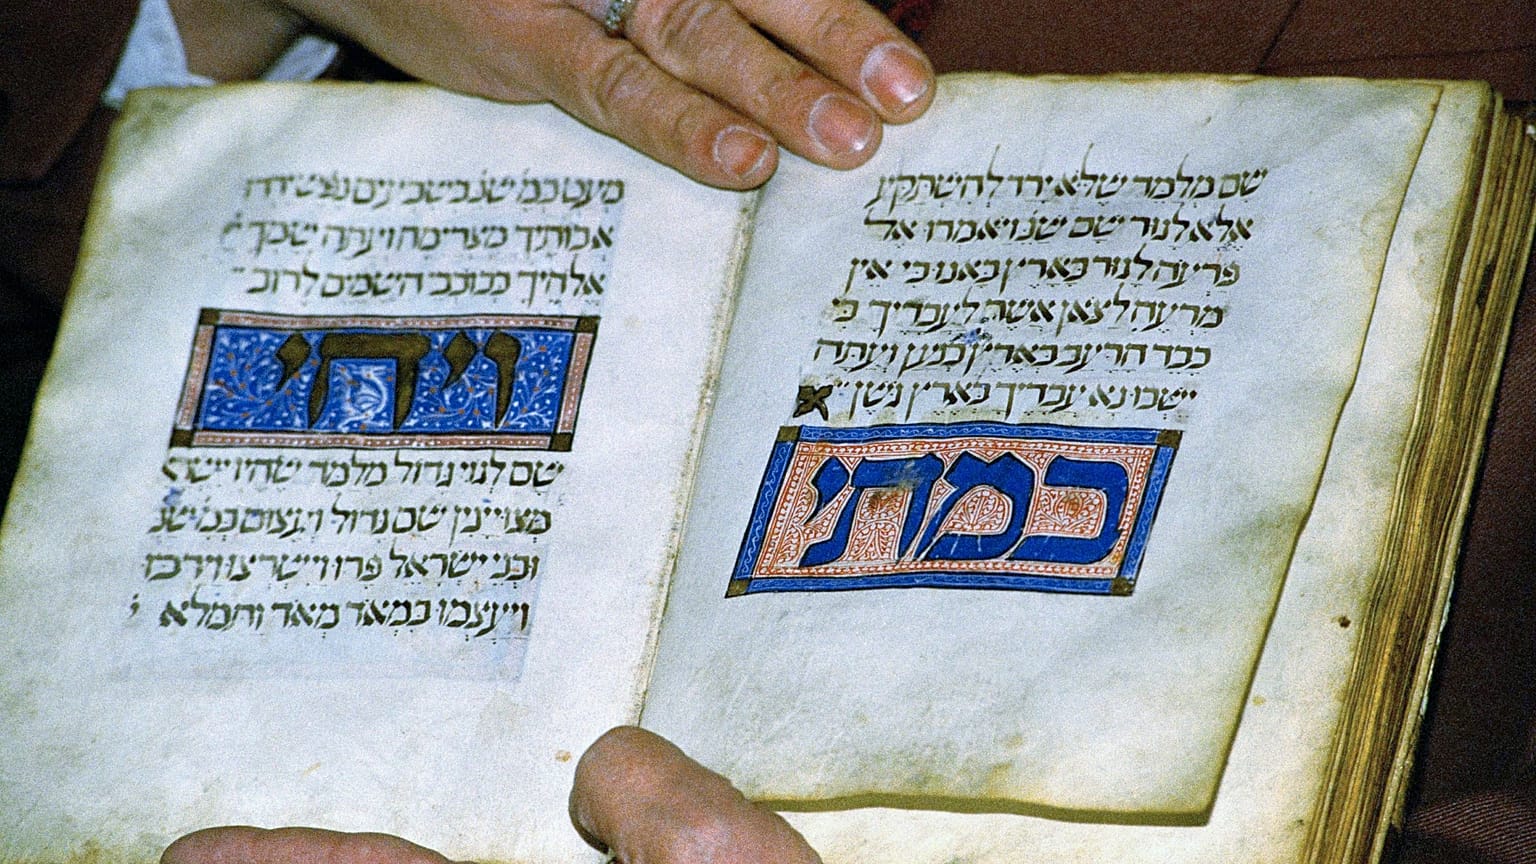 שם מלמד שלא ירד להשתקע
אלא לגור שם שנ ויאמרו אל
פרעה לגור בארץ באנו כי אין
מרעה לצאן אשר לעבדיך כי
כבד הרעב בארץ כנען ועתה
ישבו נא עבדיך בארץ גשן
במתי
מעט כמ שנ בשבעים נפש ירדו
אבותיך מצרימה ועתה שמך
אלהיך ככוכבי השמים לרוב
ויהי
שם לגוי גדול מלמד שהיו ישרא
מצויינין שם גדול ועצום כמ שנ
ובני ישראל פרו וישרצו וירבו
ויעצמו במאד מאד ותמלא